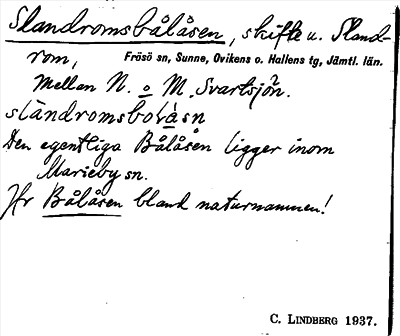 Slandromsbålåsen, skifte u. Sland-
rom, Frösö sn, Sunne, Ovikens o. Hallens tg, Jämtl. län.
Mellan N. o M. Svartsjön.
Den egentliga Bålåsen ligger inom
Marieby sn.
Jfr Bålåsen bland naturnamnen!
C. LINDBERG 1937.